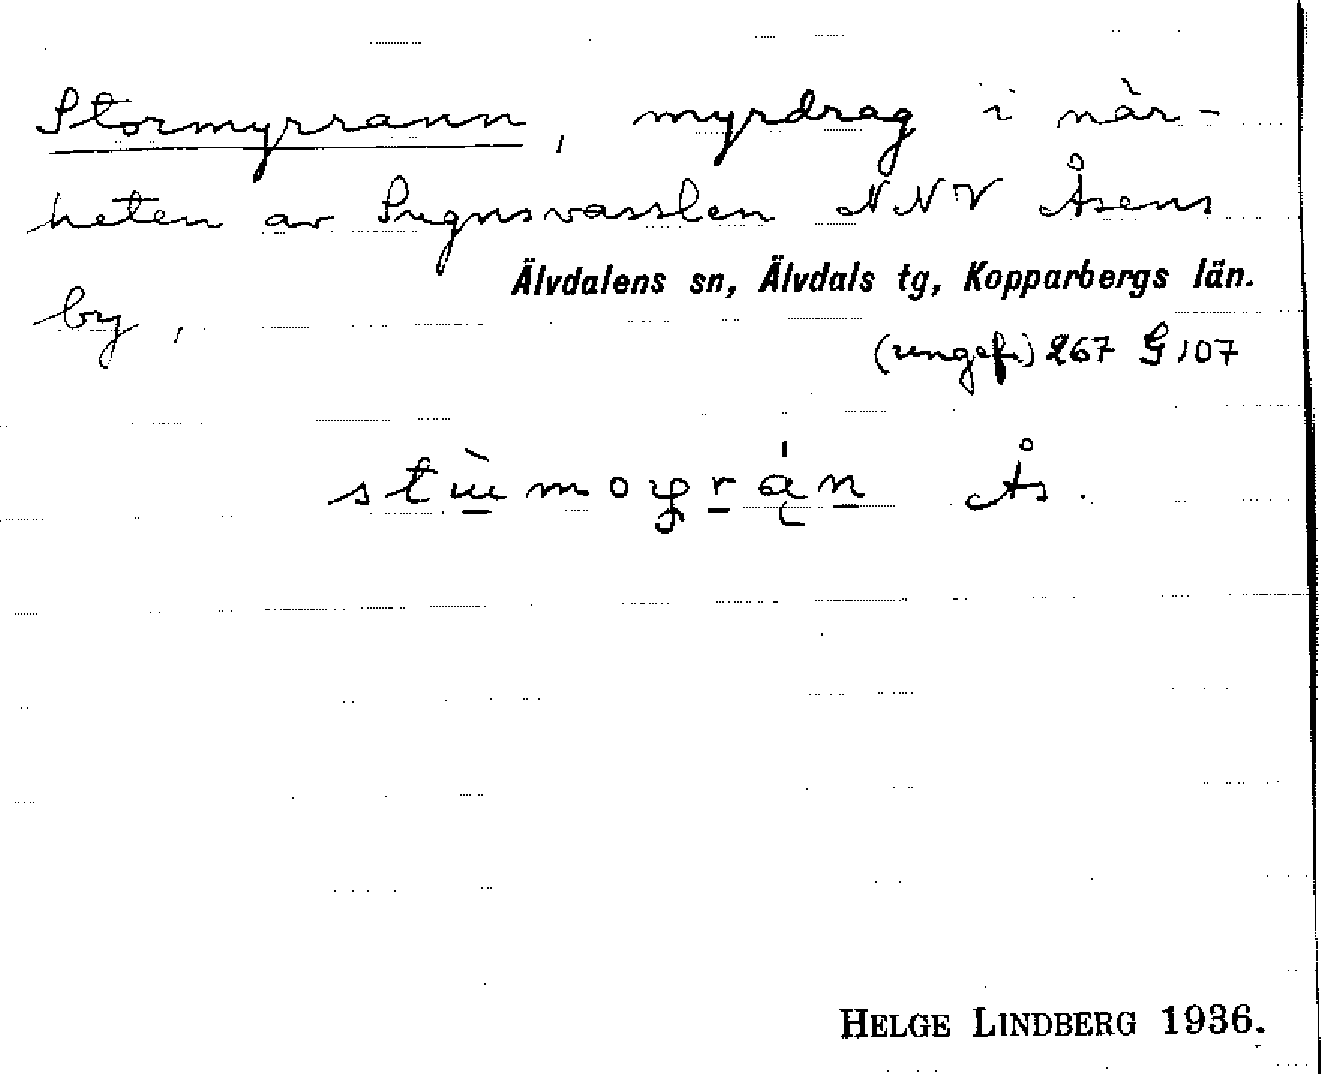 Stormyrrann, myrdrag i när-
heten av Sugnsvasslen NNV Åsens
Älvdalens sn, Älvdals tg, Kopparbergs län.
by,
(ungef.) 267 G 107
Ås.
HELGE LINDBERG 1936.